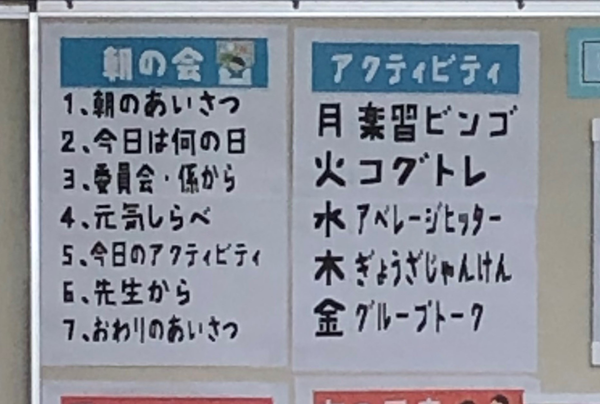 朝の会
1、朝のあいさつ
2、今日は何の日
3、委員会・係から
4、元気しらべ
5、今日のアクティビティ
6、先生から
7、おわりのあいさつ
アクティビティ
月 楽習ビンゴ
火 コグトレ
水 アベレージヒッター
木 ぎょうざじゃんけん
金 グループトーク